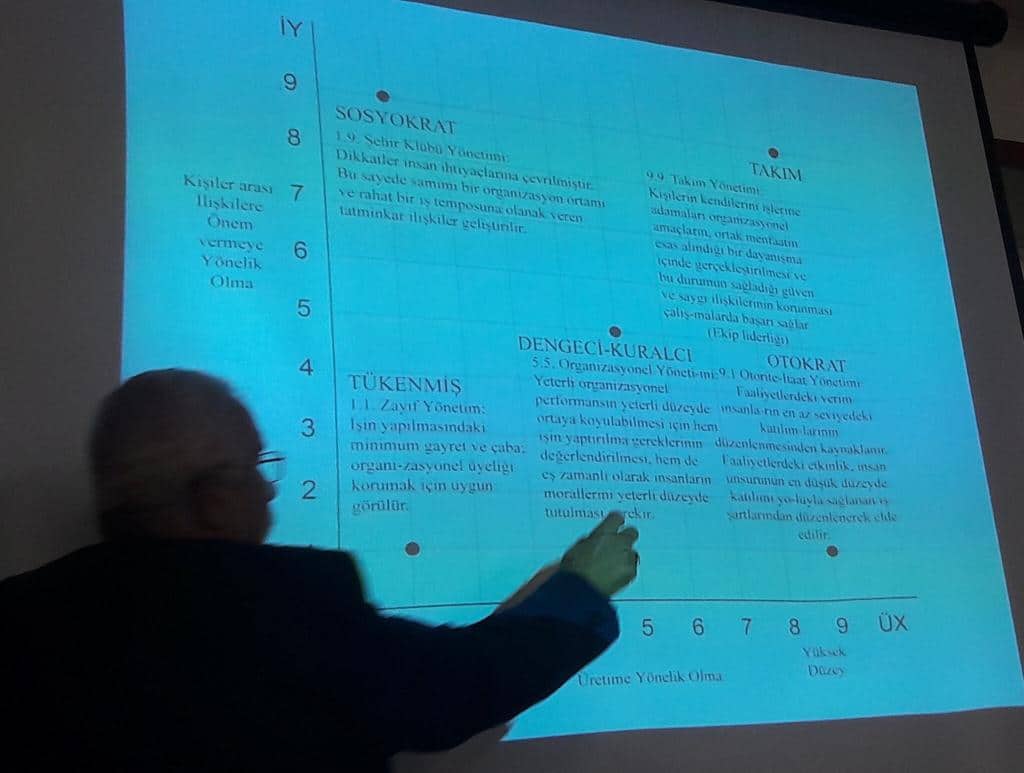 İY
9
8
7
6
5
4
3
2
Kişiler arası
İlişkilere
Önem
vermeye
Yönelik
Olma
SOSYOKRAT
1.9. Şehir Klübü Yönetimi:
Dikkatler insan ihtiyaçlarına çevrilmiştir.
Bu sayede samimi bir organizasyon ortamı
ve rahat bir iş temposuna olanak veren
tatminkar ilişkiler geliştirilir.
TAKIM
9.9. Takım Yönetimi:
Kişilerin kendilerini işlerine
adamaları organizasyonel
amaçların, ortak menfaatin
esas alındığı bir dayanışma
içinde gerçekleştirilmesi ve
bu durumun sağladığı güven
ve saygı ilişkilerinin korunması
çalış-malarda başarı sağlar
(Ekip liderliği)
TÜKENMİŞ
1.1. Zayıf Yönetim:
İşin yapılmasındaki
minimum gayret ve çaba;
organi-zasyonel üyeliği
korumak için uygun
görülür.
DENGECİ-KURALCI
5.5. Organizasyonel Yöneti-mi:
Yeterli organizasyonel
performansın yeterli düzeyde
ortaya koyulabilmesi için hem
işin yaptırılma gereklerinin
değerlendirilmesi, hem de
eş zamanlı olarak insanların
morallerini yeterli düzeyde
tutulması
OTOKRAT
9.1 Otorite-İtaat Yönetimi:
Faaliyetlerdeki verim
insanla-rın en az seviyedeki
katılım-larının
düzenlenmesinden kaynaklanır.
Faaliyetlerdeki etkinlik, insan
unsurunun en düşük düzeyde
katılımı yo-luyla sağlanan iş
şartlarından düzenlenerek elde
edilir.
5 6 7 8 9 ÜX
Yüksek
Düzey
Üretime Yönelik Olma